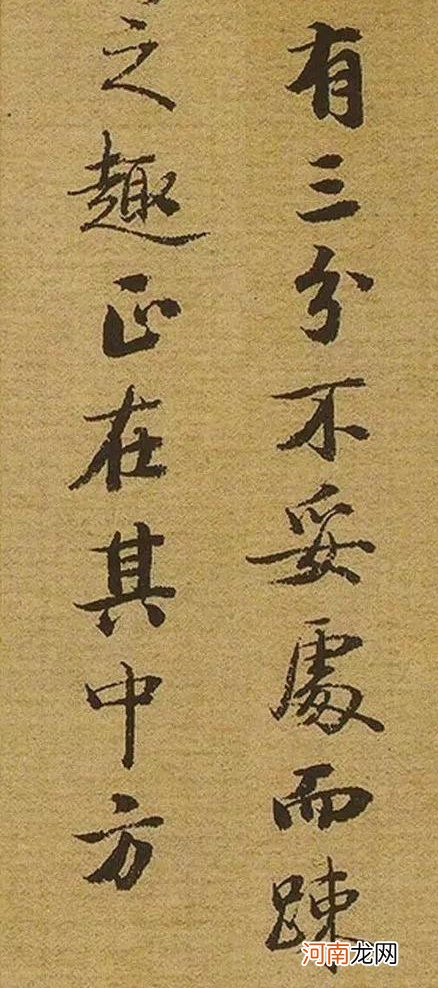 有三分不妥處而踈
之趣正在其中方
河南龙网